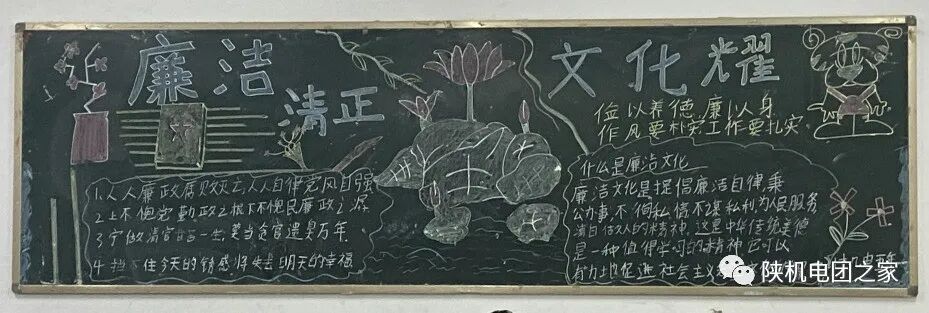 廉洁
清正
文化耀
俭以养德 廉以身
作风要朴实工作要扎实
1.人人廉政腐败灭亡人人自律党风自强
2.上不愧党勤政之根下不愧民廉政之
3宁做清官 一生莫当贪官遗臭万年
4.挡不住今天的诱惑将失去明天的幸福
什么是廉洁文化
廉洁文化是提倡廉洁自律,秉
公办事,不徇私情不谋私利为人民服务
清白做人的精神,这是中华传统美德
是一种值得学习的精神它可以
有力地促进社会主义
陕机电团之家